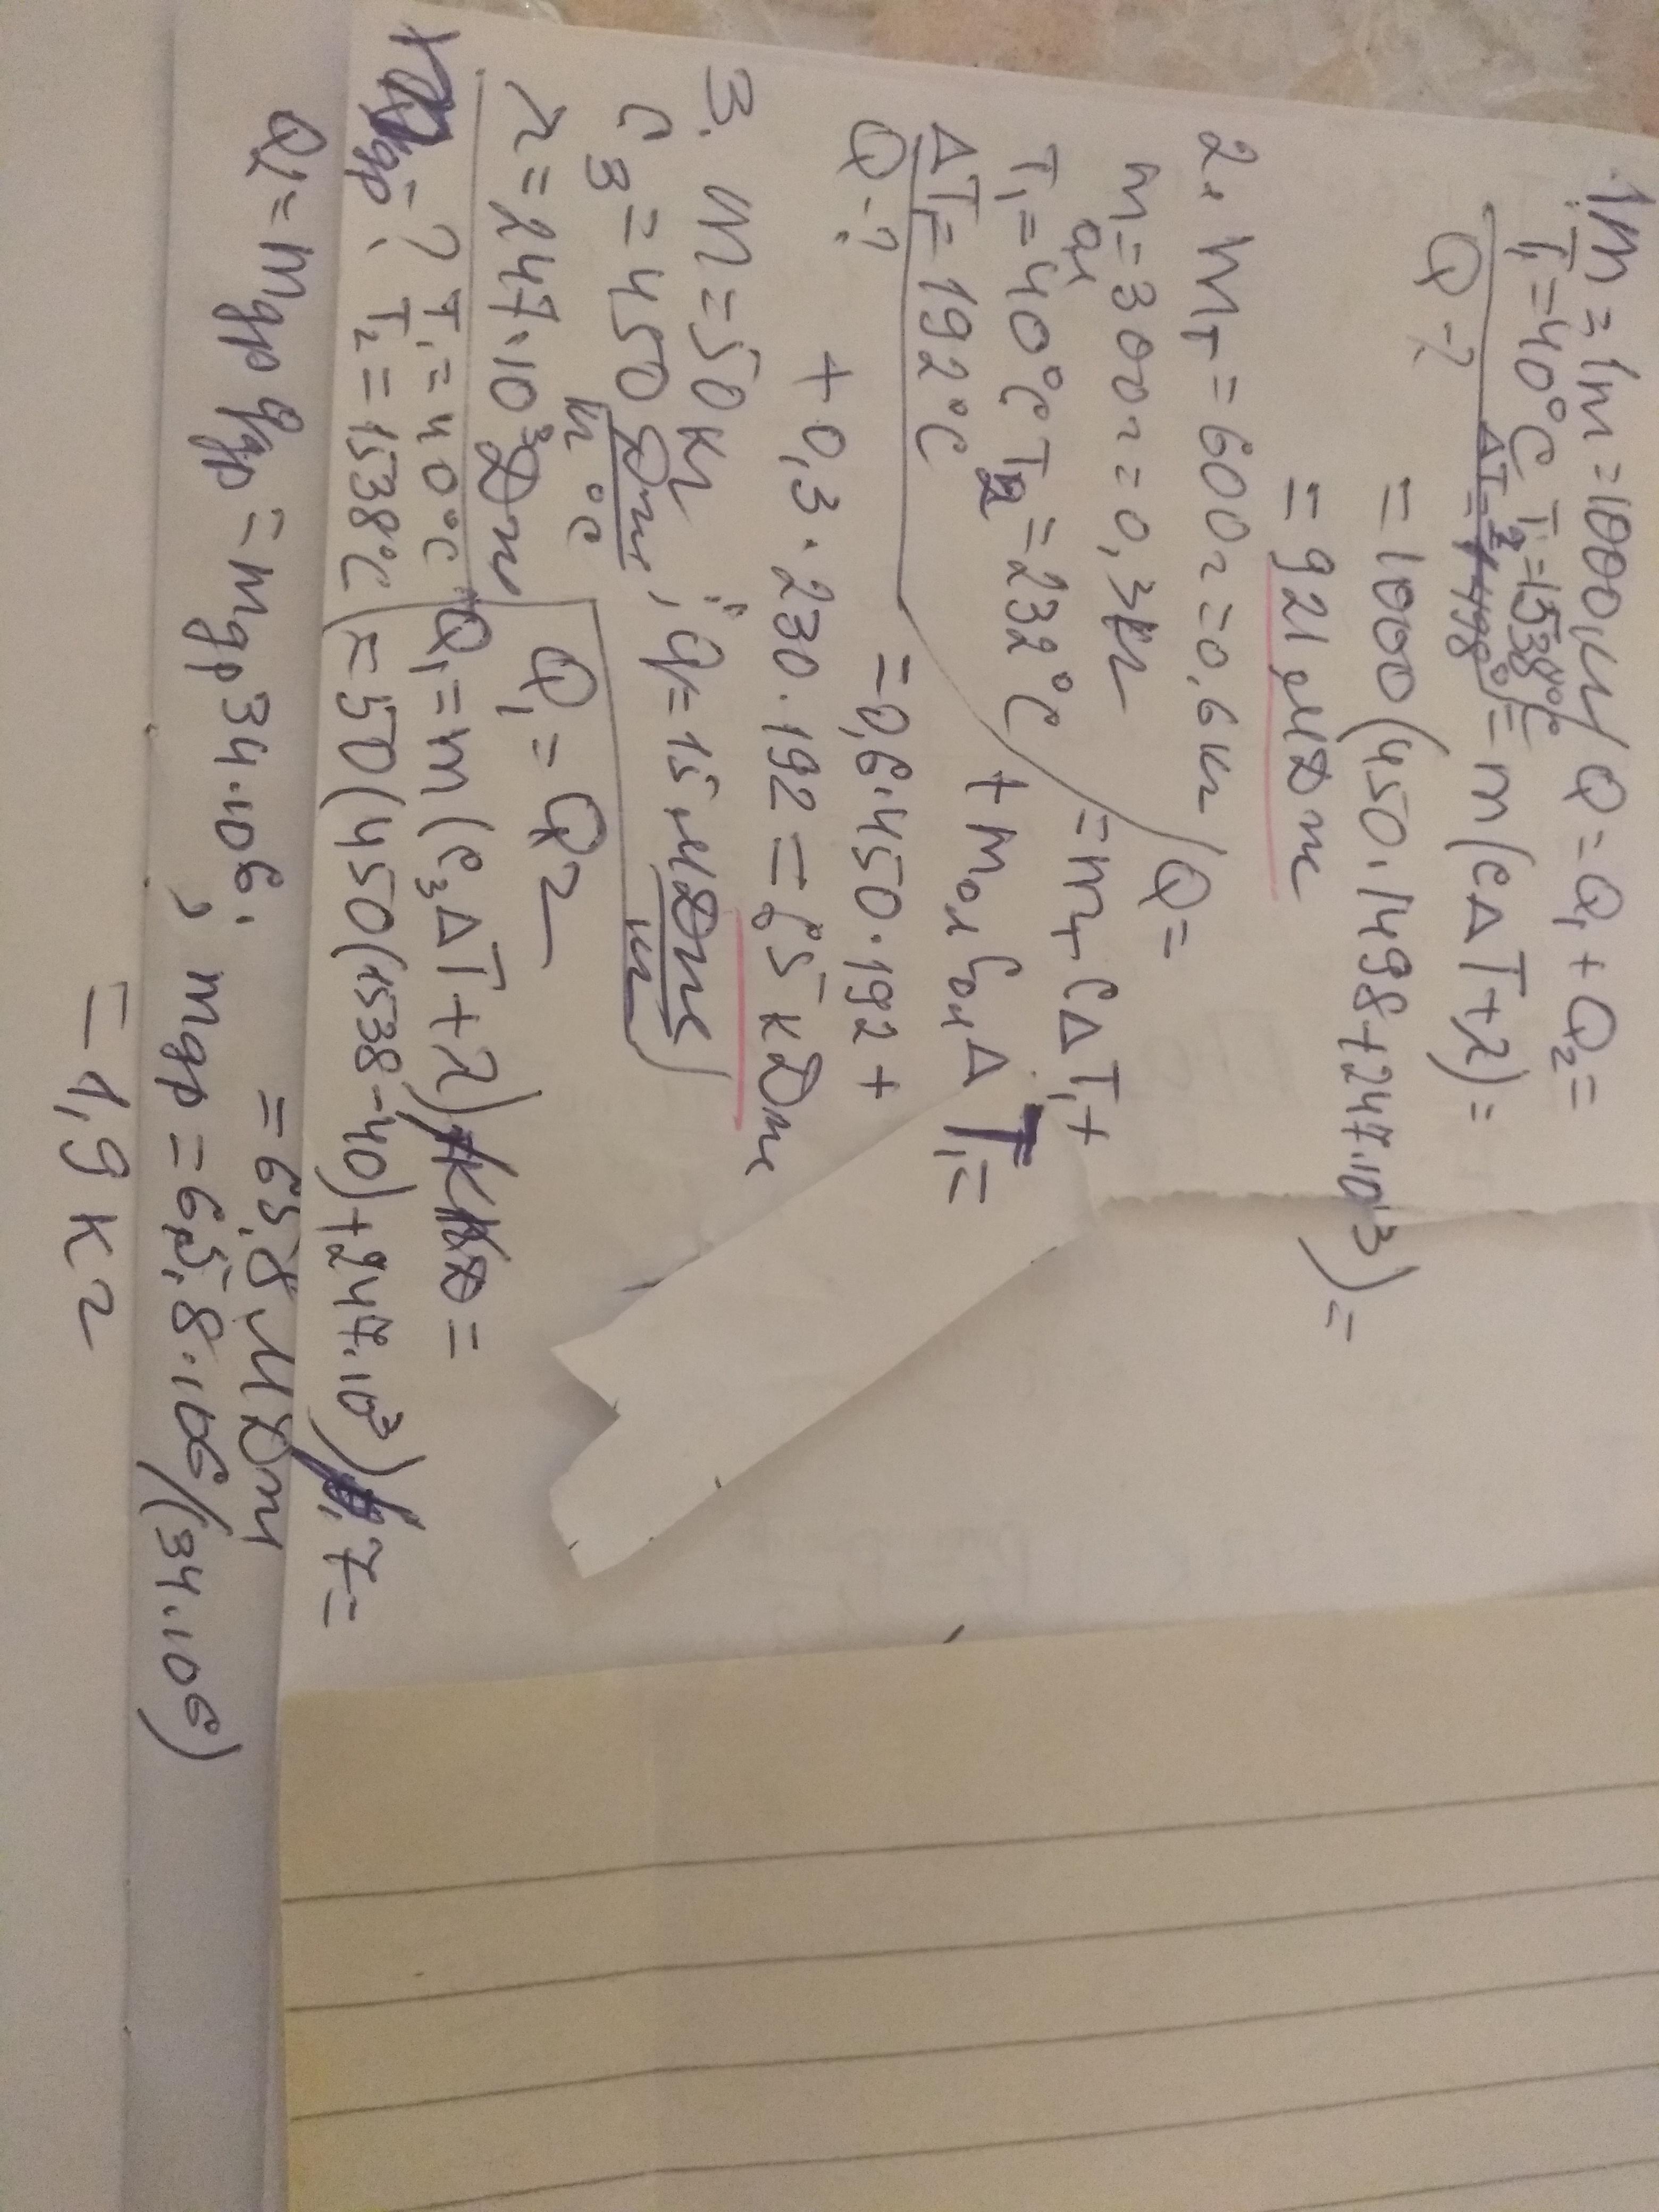 1. m = 1т = 1000 кг Q = Q₁ + Q₂ =
T₁ = 40°C T₂ = 1538°C = m(cΔT + λ) =
ΔT = 1498°
Q - ?
= 1000(450 · 1498 + 247 · 10³) =
= 921 МДж
2. mт = 600г = 0,6 кг Q =
mол = 300г = 0,3 кг = mт cΔT₁ +
T₁ = 40°C T₂ = 232°C + mол Cол ΔT₁ =
ΔT₁ = 192°C
Q - ? = 0,6 · 450 · 192 +
+ 0,3 · 230 · 192 = 65 кДж
3. m = 50 кг
c₃ = 450 Дж/кг°C; q = 15 МДж/кг
λ = 247 · 10³ Дж Q₁ = Q2
mдр = ? T₁ = 40°C Q₁ = m(c₃ΔT + λ) =
T₂ = 1538°C = 50(450(1538 - 40) + 247 · 10³) =
= 65,8 МДж
Q₂ = mдр qдр = mдр 34 · 10⁶; mдр = 65,8 · 10⁶/(34 · 10⁶)
= 1,9 кг